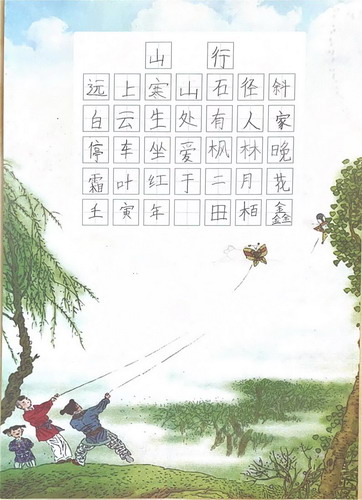 山行
远上寒山石径斜
白云生处有人家
停车坐爱枫林晚
霜叶红于二月花
壬寅年 田栢鑫